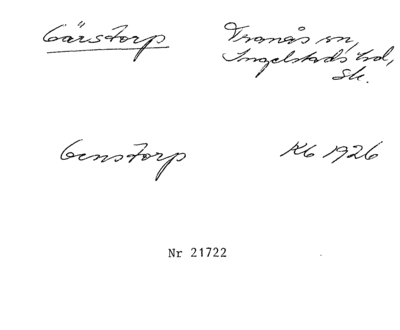 Gärstorp Tranås sn,
Ingelstads hd,
Sk.
Genstorp Kb 1926
Nr 21722